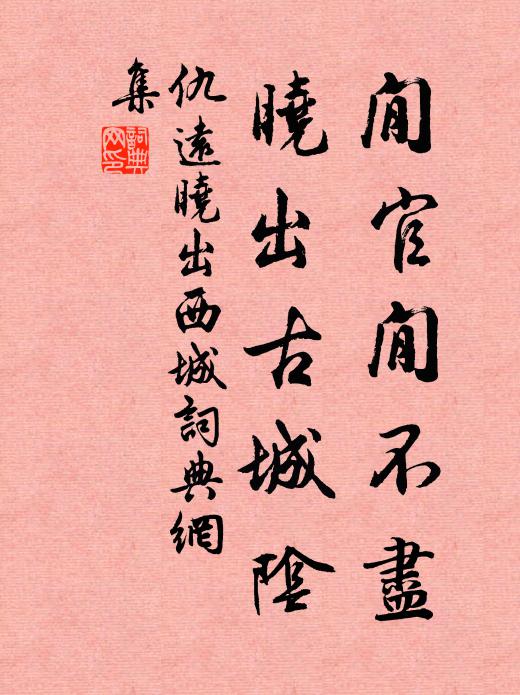 閒官閒不盡
曉出古城陰
仇遠曉出西城詞典網
集
詞典
网印